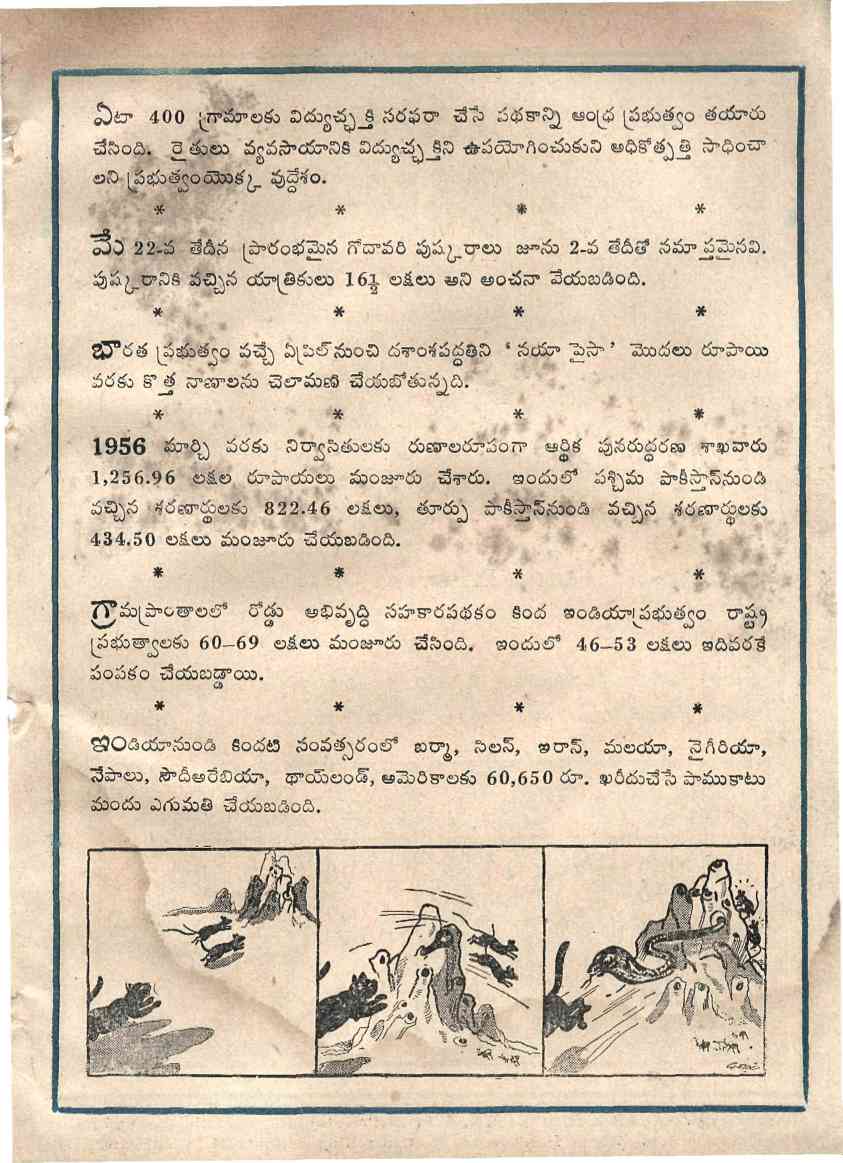 ఏటా 400 గ్రామాలకు విద్యుచ్ఛక్తి సరఫరా చేసే పథకాన్ని ఆంధ్ర ప్రభుత్వం తయారు
చేసింది. రైతులు వ్యవసాయానికి విద్యుచ్ఛక్తిని ఉపయోగించుకుని అధికోత్పత్తి సాధించా
లని ప్రభుత్వంయొక్క వుద్దేశం.
* * * *
మే 22-వ తేదీన ప్రారంభమైన గోదావరి పుష్కరాలు జూను 2-వ తేదీతో సమాప్తమైనవి.
పుష్కరానికి వచ్చిన యాత్రికులు 16½ లక్షలు అని అంచనా వేయబడింది.
* * * *
భారత ప్రభుత్వం వచ్చే ఏప్రిల్‌నుంచి దశాంశపద్ధతిని ‘నయా పైసా’ మొదలు రూపాయి
వరకు కొత్త నాణాలను చెలామణి చేయబోతున్నది.
* * * *
1956 మార్చి వరకు నిర్వాసితులకు రుణాలరూపంగా ఆర్థిక పునరుద్ధరణ శాఖవారు
1,256.96 లక్షల రూపాయలు మంజూరు చేశారు. ఇందులో పశ్చిమ పాకీస్తాన్‌నుండి
వచ్చిన శరణార్థులకు 822.46 లక్షలు, తూర్పు పాకీస్తాన్‌నుండి వచ్చిన శరణార్థులకు
434.50 లక్షలు మంజూరు చేయబడింది.
* * * *
గ్రామప్రాంతాలలో రోడ్డు అభివృద్ధి సహకారపథకం కింద ఇండియాప్రభుత్వం రాష్ట్ర
ప్రభుత్వాలకు 60–69 లక్షలు మంజూరు చేసింది. ఇందులో 46–53 లక్షలు ఇదివరకే
పంపకం చేయబడ్డాయి.
* * * *
ఇండియానుండి కిందటి సంవత్సరంలో బర్మా, సిలన్, ఇరాన్, మలయా, నైగీరియా,
నేపాలు, సౌదీఅరేబియా, థాయ్‌లండ్, అమెరికాలకు 60,650 రూ. ఖరీదుచేసే పాముకాటు
మందు ఎగుమతి చేయబడింది.